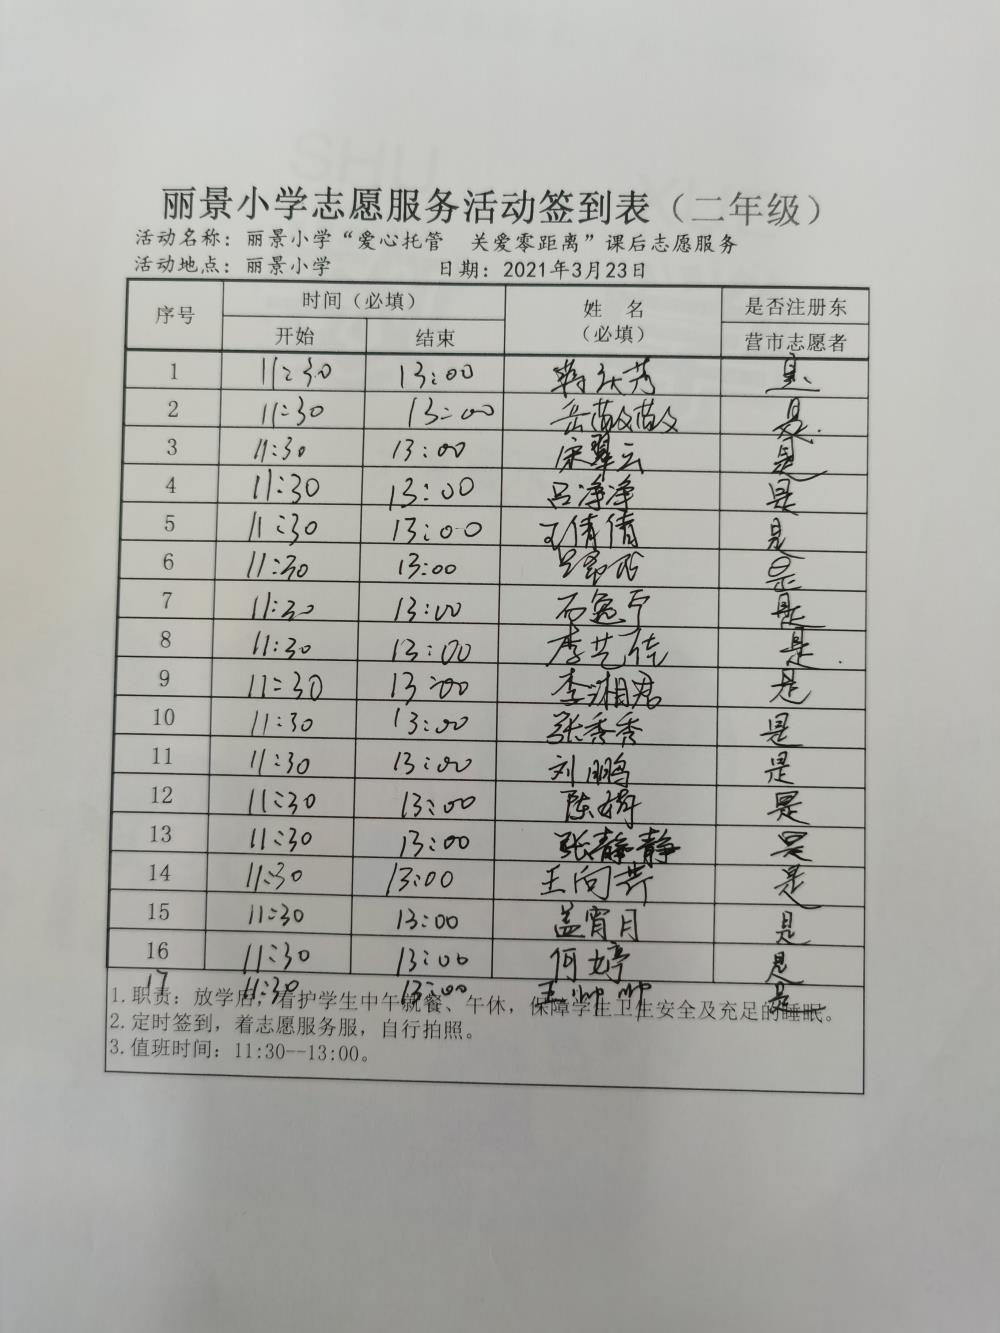 丽景小学志愿服务活动签到表（二年级）
活动名称：丽景小学“爱心托管 关爱零距离”课后志愿服务
活动地点：丽景小学 日期：2021年3月23日
序号 时间（必填） 姓 名（必填） 是否注册东营市志愿者
开始 结束
1 11:30 13:00 是
2 11:30 13:00 岳敬敬 是
3 11:30 13:00 宋翠云 是
4 11:30 13:00 吕净净 是
5 11:30 13:00 王倩倩 是
6 11:30 13:00 是
7 11:30 13:00 石 是
8 11:30 13:00 李艺佳 是
9 11:30 13:00 李湘君 是
10 11:30 13:00 张秀秀 是
11 11:30 13:00 刘鹏 是
12 11:30 13:00 陈 是
13 11:30 13:00 张静静 是
14 11:30 13:00 王向 是
15 11:30 13:00 盖宵月 是
16 11:30 13:00 何婷 是
17 11:30 13:00 王帅帅 是
1.职责：放学后，看护学生中午就餐、午休，保障学生卫生安全及充足的睡眠。
2.定时签到，着志愿服务服，自行拍照。
3.值班时间：11:30--13:00。